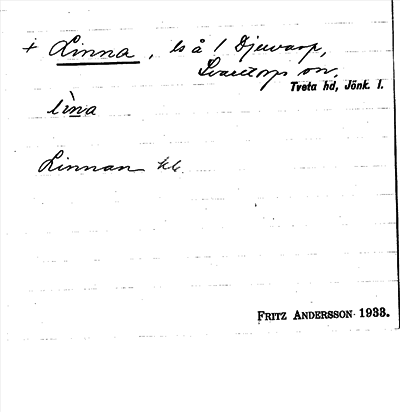 + Linna, ls å 1 Djuvarp,
Svarttorps sn,
Tveta hd, Jönk. l.
lìna
Linnan kk
FRITZ ANDERSSON 1933.